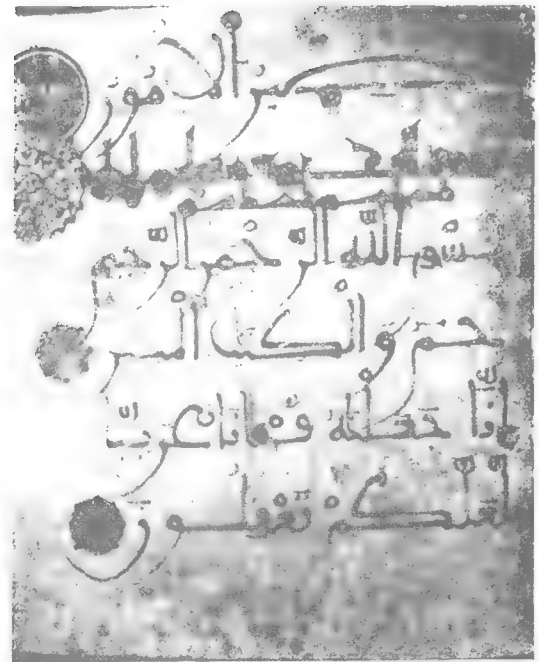 تصير الامور
بسم الله الرحمن الرحيم
حم والكتب المبين
انا جعلنه قرانا عربيا
لعلكم تعقلون